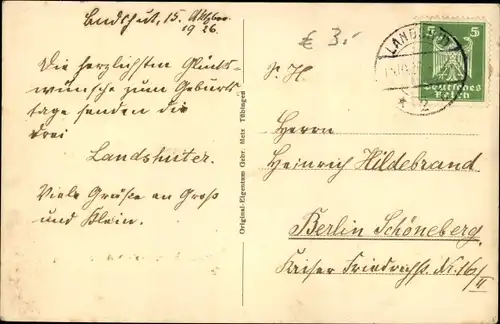 Landshut, 15. Oktober
1926.
Die herzlichsten Glück-
wünsche zum Geburts
tage senden die
drei
Landshuter.
Viele Grüße an Groß
und Klein.
Original-Eigentum Gebr. Metz Tübingen
€ 3,-
LANDSHUT
2
5 5
Deutsches
Reich
S. H.
Herrn
Heinrich Hildebrand
Berlin Schöneberg.
Kaiser Friedrichstr. Nr. 16/
II